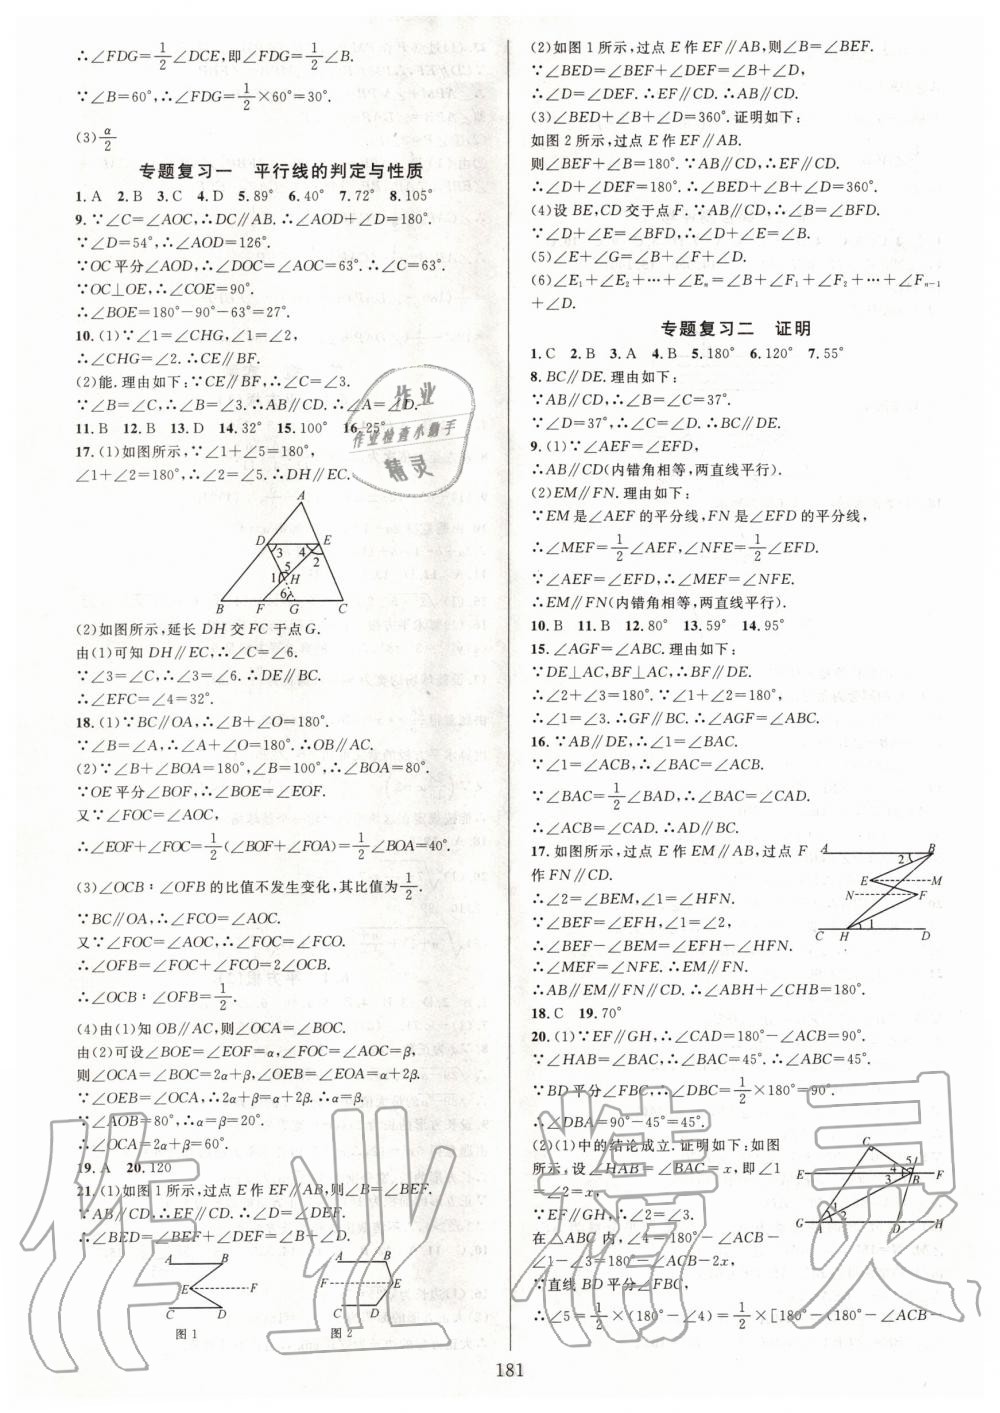 ∴∠FDG=1/2∠DCE,即∠FDG=1/2∠B.
∵∠B=60°,∴∠FDG=1/2×60°=30°.
(3)α/2
专题复习一 平行线的判定与性质
1. A 2. B 3. C 4. D 5. 89° 6. 40° 7. 72° 8. 105°
9. ∵∠C=∠AOC,∴DC∥AB. ∴∠AOD+∠D=180°.
∵∠D=54°,∴∠AOD=126°.
∵OC平分∠AOD,∴∠DOC=∠AOC=63°. ∴∠C=63°.
∵OC⊥OE,∴∠COE=90°.
∴∠BOE=180°-90°-63°=27°.
10. (1)∵∠1=∠CHG,∠1=∠2,
∴∠CHG=∠2. ∴CE∥BF.
(2)能.理由如下:∵CE∥BF,∴∠C=∠3.
∵∠B=∠C,∴∠B=∠3. ∴AB∥CD. ∴∠A=∠D.
11. B 12. B 13. D 14. 32° 15. 100° 16. 25°
17. (1)如图所示,∵∠1+∠5=180°,
∠1+∠2=180°,∴∠2=∠5. ∴DH∥EC.
A
D E
3 4 2
1 5 H
6
B F G C
(2)如图所示,延长DH交FC于点G.
由(1)可知DH∥EC,∴∠C=∠6.
∵∠3=∠C,∴∠3=∠6. ∴DE∥BC.
∴∠EFC=∠4=32°.
18. (1)∵BC∥OA,∴∠B+∠O=180°.
∵∠B=∠A,∴∠A+∠O=180°. ∴OB∥AC.
(2)∵∠B+∠BOA=180°,∠B=100°,∴∠BOA=80°.
∵OE平分∠BOF,∴∠BOE=∠EOF.
又∵∠FOC=∠AOC,
∴∠EOF+∠FOC=1/2(∠BOF+∠FOA)=1/2∠BOA=40°.
(3)∠OCB∶∠OFB的比值不发生变化,其比值为1/2.
∵BC∥OA,∴∠FCO=∠AOC.
又∵∠FOC=∠AOC,∴∠FOC=∠FCO.
∴∠OFB=∠FOC+∠FCO=2∠OCB.
∴∠OCB∶∠OFB=1/2.
(4)由(1)知OB∥AC,则∠OCA=∠BOC.
由(2)可设∠BOE=∠EOF=α,∠FOC=∠AOC=β,
则∠OCA=∠BOC=2α+β,∠OEB=∠EOA=α+2β.
∵∠OEB=∠OCA,∴2α+β=α+2β. ∴α=β.
∵∠AOB=80°,∴α=β=20°.
∴∠OCA=2α+β=60°.
19. A 20. 120
21. (1)如图1所示,过点E作EF∥AB,则∠B=∠BEF.
∵AB∥CD,∴EF∥CD. ∴∠D=∠DEF.
∴∠BED=∠BEF+∠DEF=∠B+∠D.
A B A B
E F F E
C D C D
图1 图2
(2)如图1所示,过点E作EF∥AB,则∠B=∠BEF.
∵∠BED=∠BEF+∠DEF=∠B+∠D,
∴∠D=∠DEF. ∴EF∥CD. ∴AB∥CD.
(3)∠BED+∠B+∠D=360°.证明如下:
如图2所示,过点E作EF∥AB.
则∠BEF+∠B=180°. ∵AB∥CD,∴EF∥CD.
∴∠D+∠DEF=180°. ∴∠BED+∠B+∠D=360°.
(4)设BE,CD交于点F. ∵AB∥CD,∴∠B=∠BFD.
∵∠D+∠E=∠BFD,∴∠D+∠E=∠B.
(5)∠E+∠G=∠B+∠F+∠D.
(6)∠E₁+∠E₂+…+∠Eₙ=∠B+∠F₁+∠F₂+…+∠Fₙ₋₁
+∠D.
专题复习二 证明
1. C 2. B 3. A 4. B 5. 180° 6. 120° 7. 55°
8. BC∥DE.理由如下:
∵AB∥CD,∴∠B=∠C=37°.
∵∠D=37°,∴∠C=∠D. ∴BC∥DE.
9. (1)∵∠AEF=∠EFD,
∴AB∥CD(内错角相等,两直线平行).
(2)EM∥FN.理由如下:
∵EM是∠AEF的平分线,FN是∠EFD的平分线,
∴∠MEF=1/2∠AEF,∠NFE=1/2∠EFD.
∵∠AEF=∠EFD,∴∠MEF=∠NFE.
∴EM∥FN(内错角相等,两直线平行).
10. B 11. B 12. 80° 13. 59° 14. 95°
15. ∠AGF=∠ABC.理由如下:
∵DE⊥AC,BF⊥AC,∴BF∥DE.
∴∠2+∠3=180°. ∵∠1+∠2=180°,
∴∠1=∠3. ∴GF∥BC. ∴∠AGF=∠ABC.
16. ∵AB∥DE,∴∠1=∠BAC.
∵∠1=∠ACB,∴∠BAC=∠ACB.
∵∠BAC=1/2∠BAD,∴∠BAC=∠DAC.
∴∠ACB=∠CAD. ∴AD∥BC.
17. 如图所示,过点E作EM∥AB,过点F
作FN∥CD.
∴∠2=∠BEM,∠1=∠HFN.
∵∠BEF=∠EFH,∠1=∠2,
∴∠BEF-∠BEM=∠EFH-∠HFN.
∴∠MEF=∠NFE. ∴EM∥FN.
∴AB∥EM∥FN∥CD. ∴∠ABH+∠CHB=180°.
A B
2
E M
N F
1
C H D
18. C 19. 70°
20. (1)∵EF∥GH,∴∠CAD=180°-∠ACB=90°.
∵∠HAB=∠BAC,∴∠BAC=45°. ∴∠ABC=45°.
∵BD平分∠FBC,∴∠DBC=1/2×180°=90°.
∴∠DBA=90°-45°=45°.
(2)(1)中的结论成立.证明如下:如图
所示,设∠HAB=∠BAC=x,即∠1
=∠2=x,
∵EF∥GH,∴∠2=∠3.
在△ABC内,∠4=180°-∠ACB-
∠1-∠3=180°-∠ACB-2x,
∵直线BD平分∠FBC,
∴∠5=1/2×(180°-∠4)=1/2×[180°-(180°-∠ACB-
C
E 4 5 F
3 B
1 2
G A D H
181
作业
作业检查小助手
精灵
作业精灵